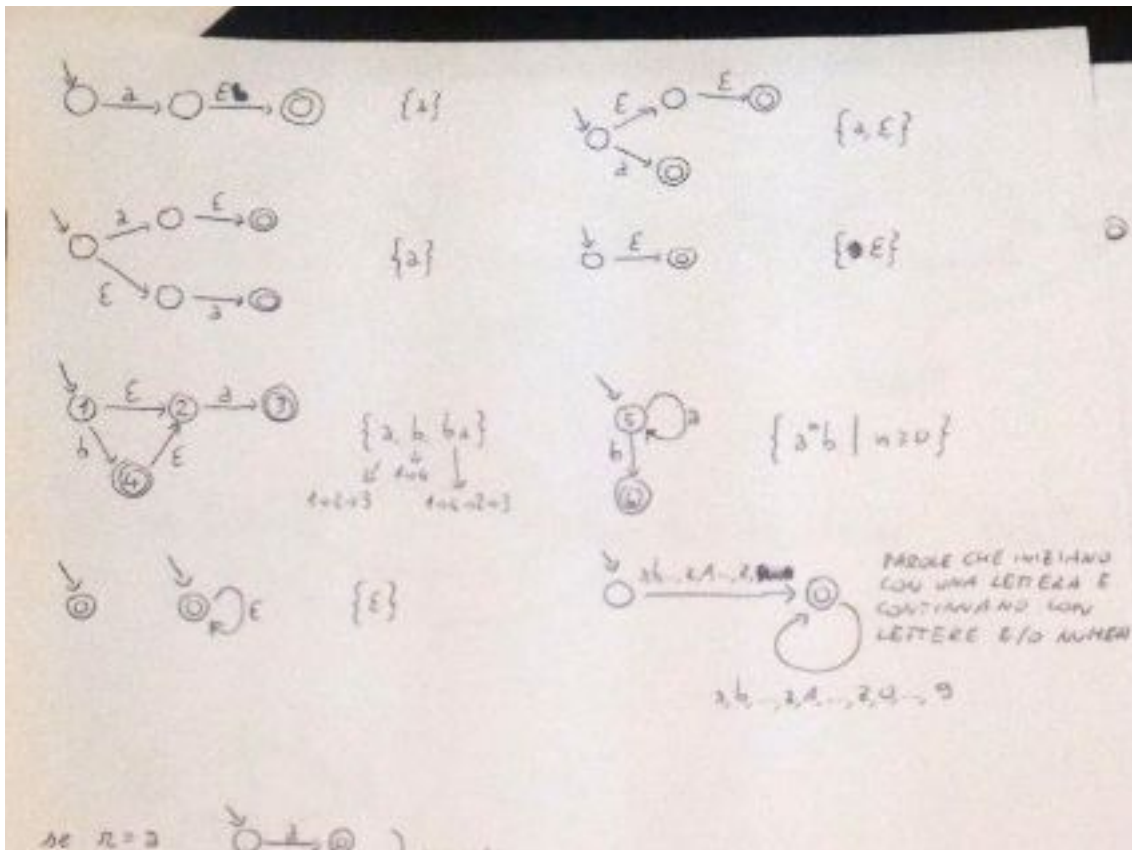 a ε {a}
ε ε
a {a, ε}
a ε
ε a {a}
ε { ε}
1 ε 2 a 3
b ε
4
{a, b, ba}
1→2→3 1→4 1→4→2→3
5 a
b
6
{aⁿb | n≥0}
ε {ε}
a,b,...,z,A,...,Z
a,b,...,z,A,...,Z,0,...,9
PAROLE CHE INIZIANO
CON UNA LETTERA E
CONTINUANO CON
LETTERE E/O NUMERI
se r = a a